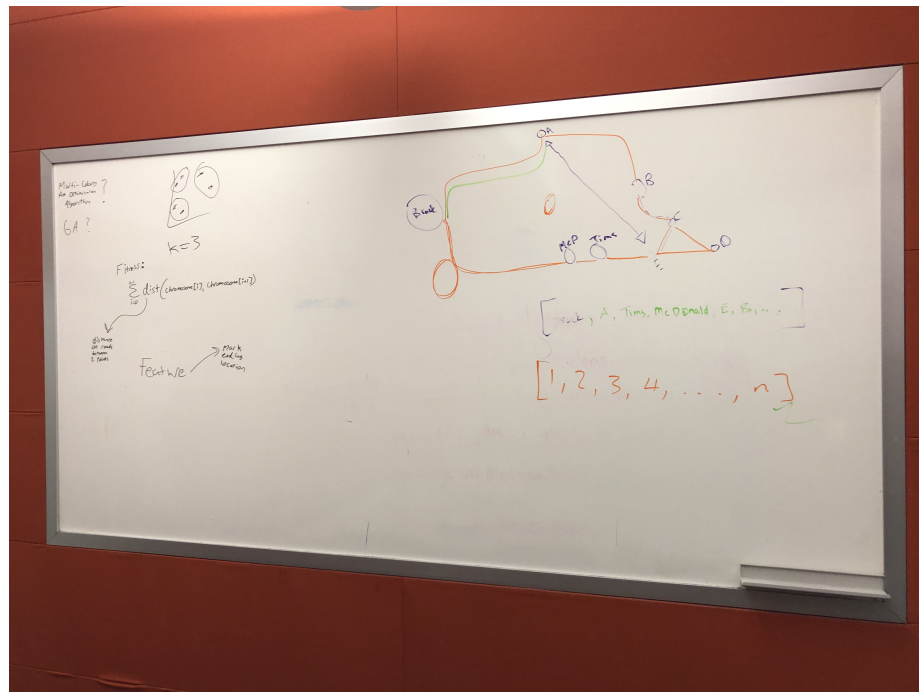 Multi-Colony
Ant Optimization
Algorithm
?
GA?
K=3
Fitness:
Σ dist(chromosome[i], chromosome[i+1])
i=0
distance
on roads
between
2 points
Feature
Mark
ending
location
A
B
Brock
McD
Tims
C
D
[Brock, A, Tims, McDonald, E, B, ...]
[1, 2, 3, 4, ...., n]